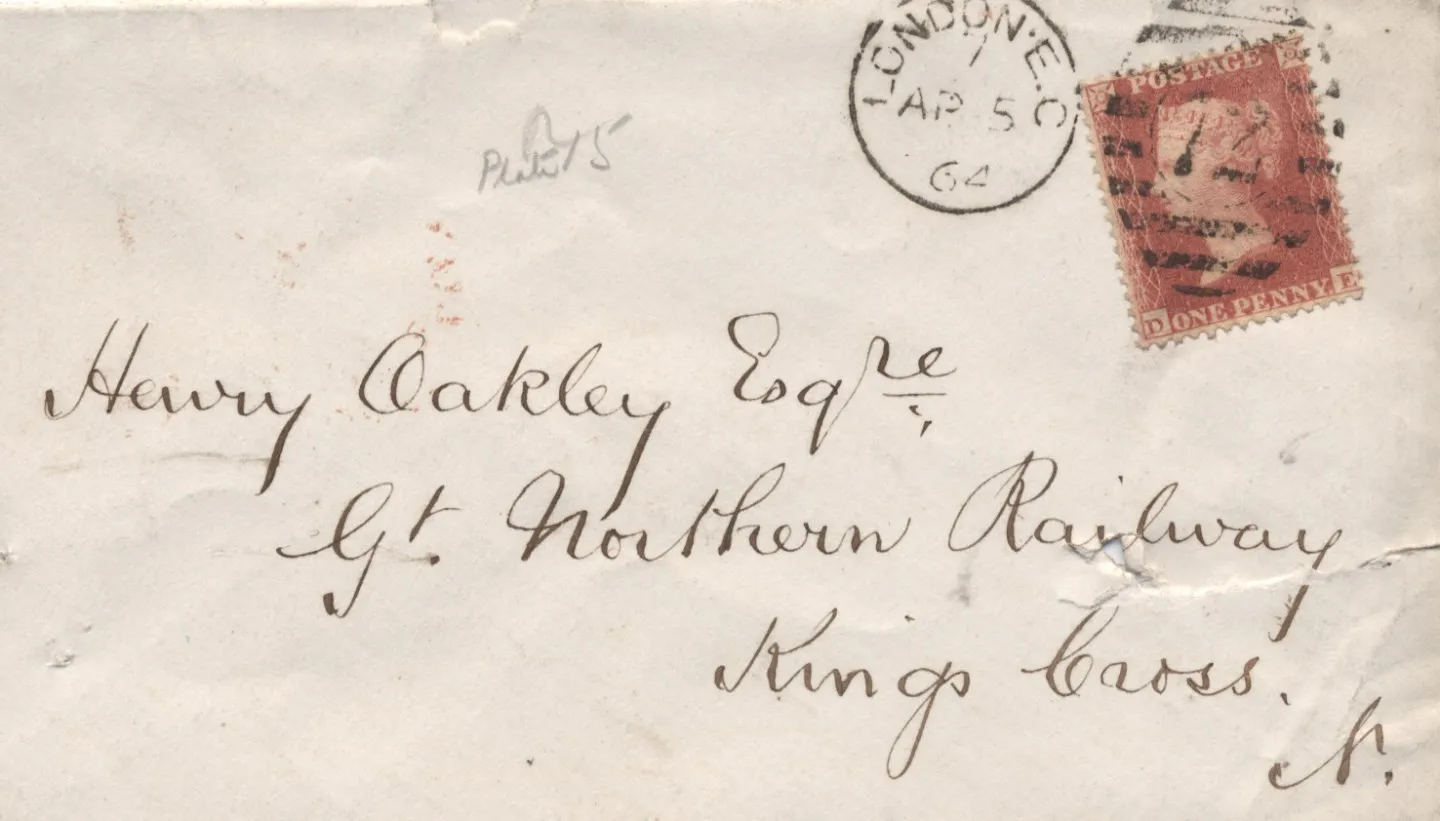 LONDON·E.C
1
AP 5
64
POSTAGE
72
D ONE PENNY E
Plate 15
Henry Oakley Esqre;
Gt. Northern Railway
Kings Cross.
N.